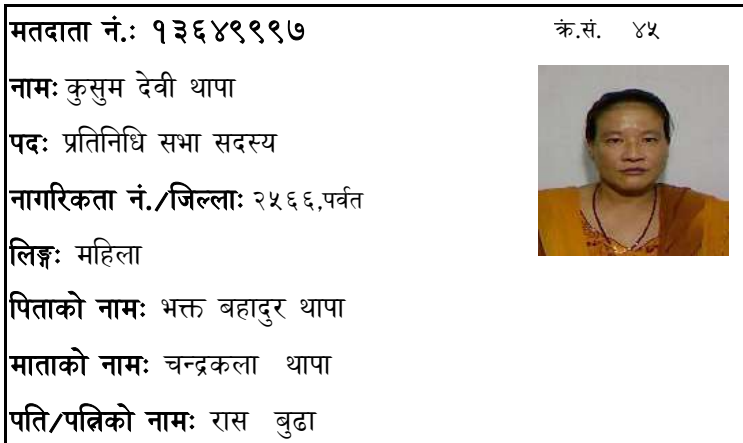 मतदाता नं.: १३६४९९९७ क्रं.सं. ४५
नामः कुसुम देवी थापा
पदः प्रतिनिधि सभा सदस्य
नागरिकता नं./जिल्लाः २५६६,पर्वत
लिङ्गः महिला
पिताको नामः भक्त बहादुर थापा
माताको नामः चन्द्रकला थापा
पति/पत्निको नामः रास बुढा